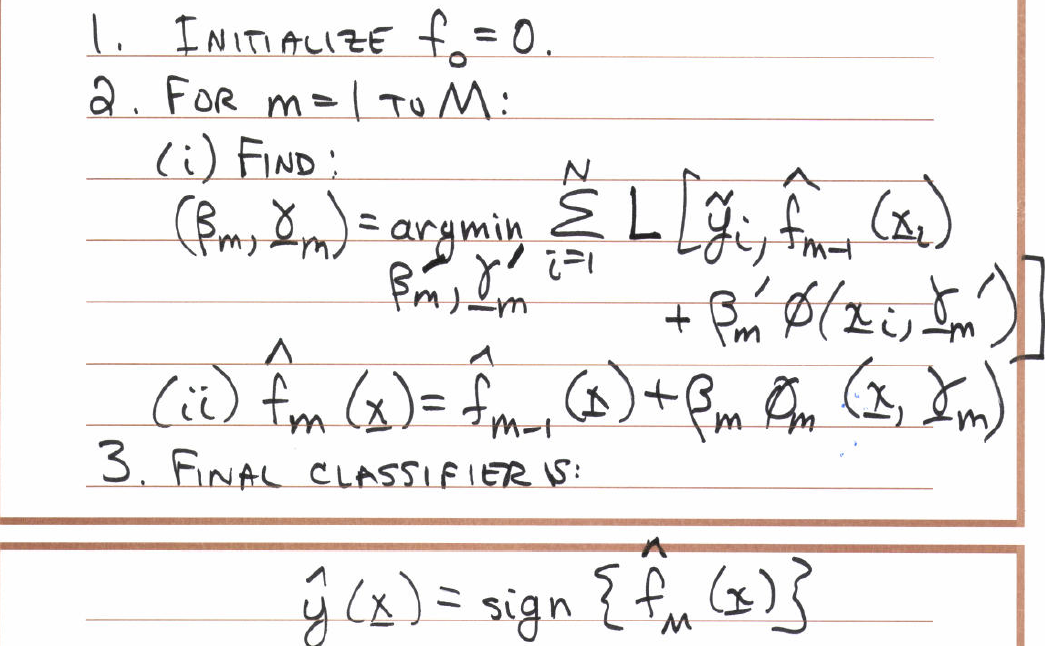 1. INITIALIZE f₀ = 0.
2. FOR m = 1 TO M:
(i) FIND:
(βₘ, γ̲ₘ) = argmin_{βₘ′, γ̲ₘ′} Σ_{i=1}^{N} L [ỹᵢ, f̂ₘ₋₁ (x̲ᵢ)
+ βₘ′ ϕ(x̲ᵢ, γ̲ₘ′)]
(ii) f̂ₘ (x̲) = f̂ₘ₋₁ (x̲) + βₘ ϕₘ (x̲, γ̲ₘ)
3. FINAL CLASSIFIER IS:
ŷ (x̲) = sign {f̂_M (x̲)}